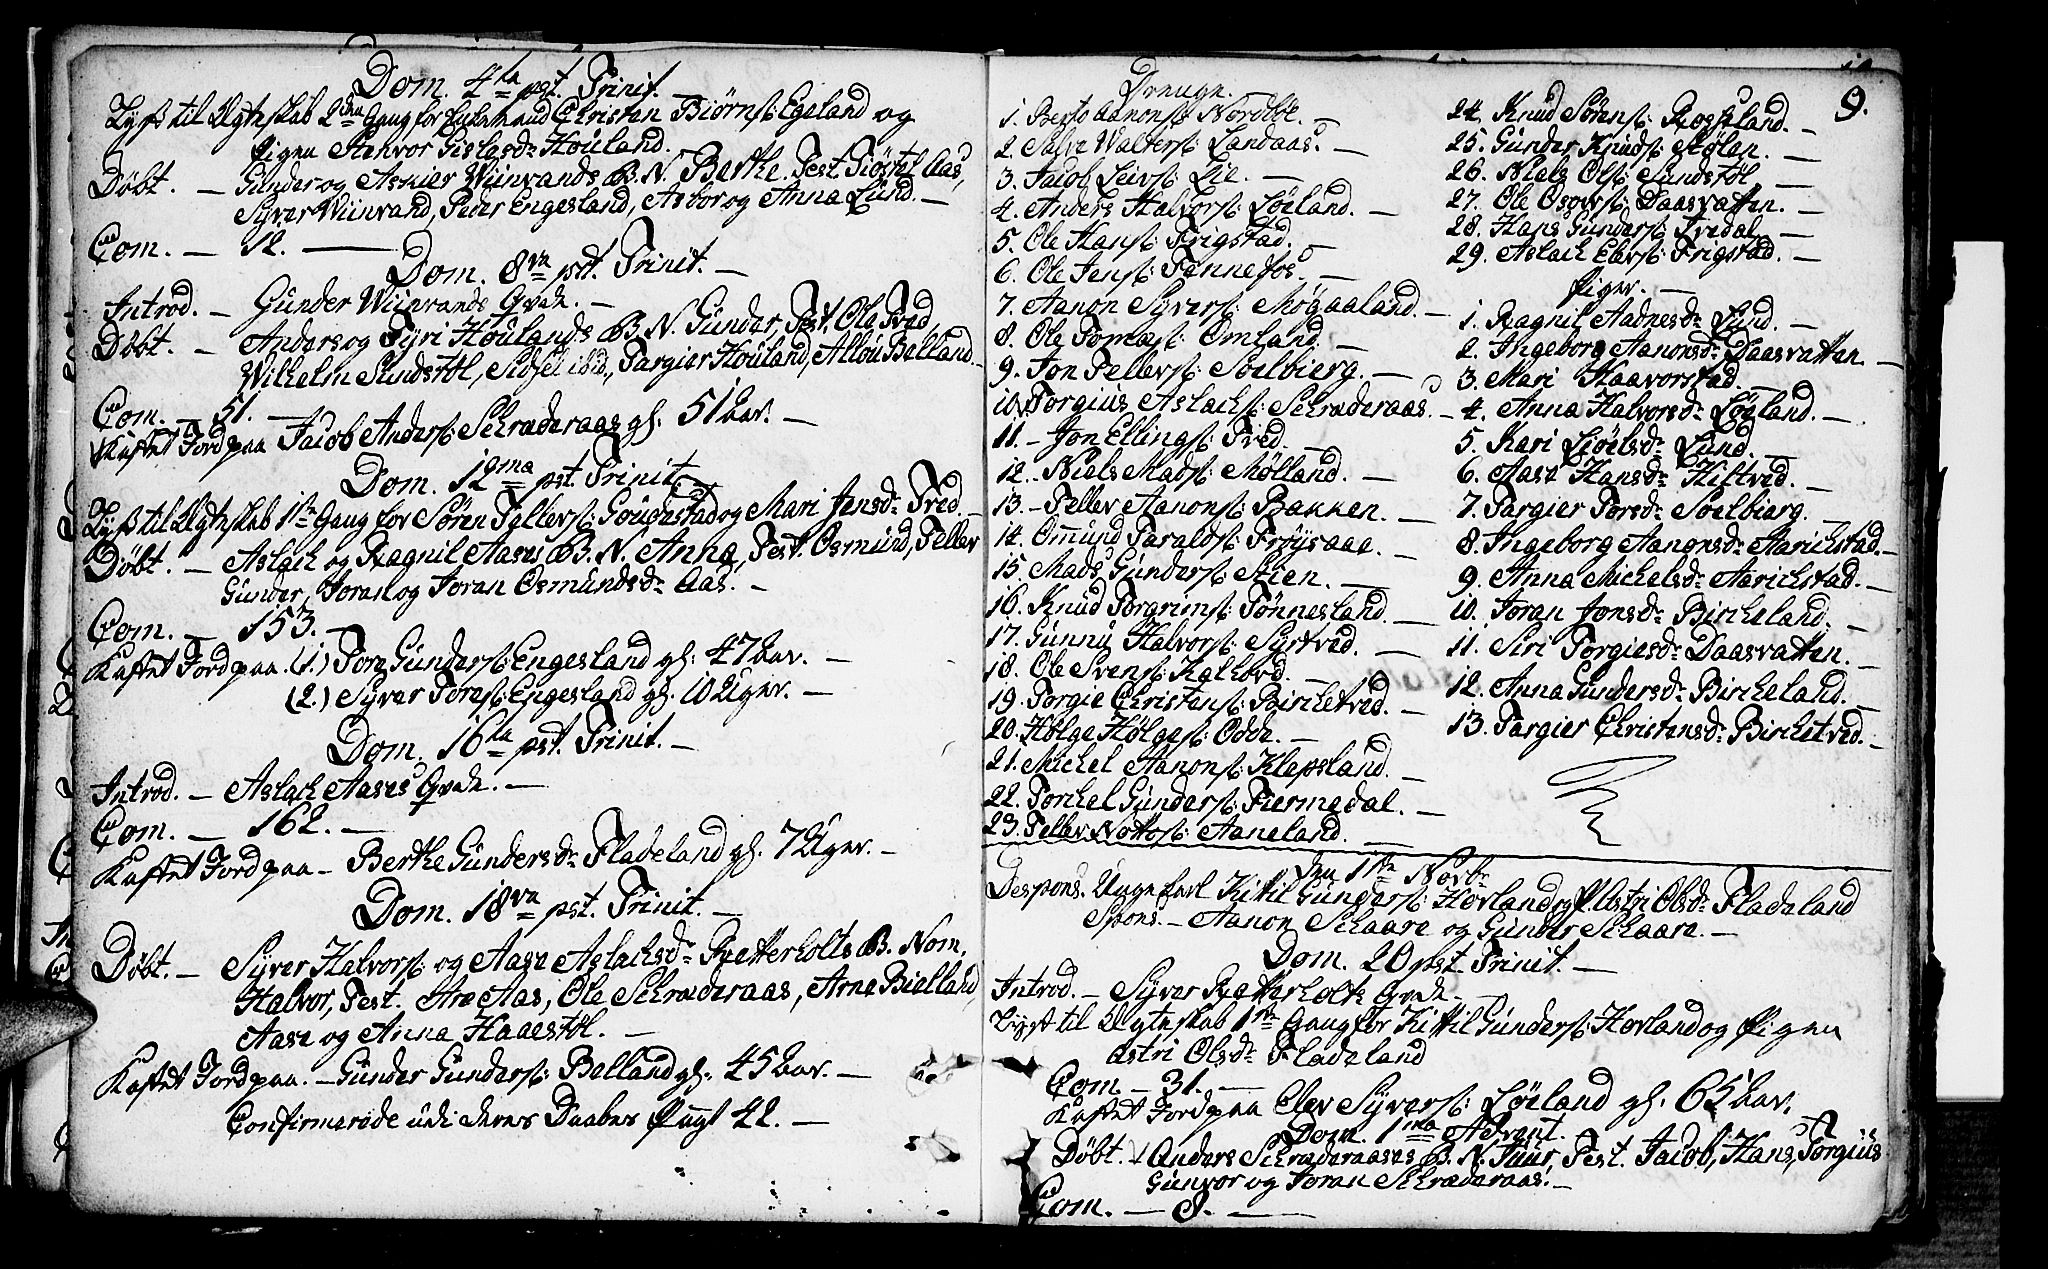 Dom. 4ta pst. Trinit.
Lyst til Ægteskab 2den Gang for Enkemand Christen Biörns: Egeland og
Pigen Stenvor Gislesdr Houland.
Döbt. – Gunder og Askier Wiinrands B. N. Berthe. Test. Aas,
Syver Wiinrand, Peder Engesland, Asbor og Anna Lund. –
Com. – 12. –
Dom. 8va pst. Trinit. –
Introd. – Gunder Wiinrands Qvde. –
Döbt. – Anders og Tyri Houlands B. N. Gunder, Test. Ole Tved,
Wilhelm Sundstöl, Sidsel ibid, Targier Houland, Allou Belland
Com. – 51. –
Kastet Jord paa Jacob Anders: Schræderaas gl. 51 aar. –
Dom. 12ma pst. Trinit. –
Lyst til Ægteskab 1ste Gang for Sören Tellefs: Gougstad og Mari Jensdr Tved. –
Döbt. – Aslach og Ragnil Aases B. N. Anna, Test. Osmund, Tellev
Gunder, Joran og Joran Osmundsdr Aas. –
Com. – 153. –
Kastet Jord paa. (1.) Tore Gunders: Engesland gl. 47 aar. –
(2.) Syver Tores: Engesland gl. 10 Uger. –
Dom. 16ta pst. Trinit. –
Introd. – Aslach Aases Qvde. –
Com. – 162. –
Kastet Jord paa – Berthe Gundersdr Fladeland gl. 7 Uger. –
Dom. 18va pst. Trinit. –
Döbt. – Syver Halvors: og Aase Aslachsdr Retterholts B. Nom.
Halvor, Test. Are Aas, Ole Schræderaas, Arne Bielland,
Aase og Anna Haaestöl. –
Kastet Jord paa. – Gunder Gunders: Belland gl. 45 aar. –
Confirmerede udi deres Daabes Pagt 42. –
9.
Drenge.
1. Aanons: Nordböe. –
2. Salve Walters: Landaas. –
3. Jacob Leivs: Lie. –
4. Anders Halvors: Löeland. –
5. Ole Hans: Frigstad. –
6. Ole Jens: Fennefos. –
7. Aanon Syvers: Mögaaland. –
8. Ole Tomas: Omland. –
9. Jon Tellevs: Soelbierg. –
10. Torgius Aslachs: Schræderaas. –
11. – Jon Ellings: Tved. –
12. – Niels Mads: Mölland. –
13. – Tellev Aanons: Bakken. –
14. Omund Taralds: Fröysaae. –
15. Mads Gunders: Stien. –
16. Knud Torgrims: Tönnesland. –
17. Gunnu Halvors: Syrtved. –
18. Ole Svens: Kalhovd. –
19. Torgie Christens: Birchetved. –
20. Hölge Hölges: Odde. –
21. Michel Aanons: Klepsland. –
22. Torchel Gunders: Fiermedal. –
23. Tellev Nottos: Aaneland. –
24. Knud Sörens: Rosseland. –
25. Gunder Knuds: Stölen. –
26. Niels Ols: Sundstöl –
27. Ole Osovs: Daasvatten. –
28. Hans Gunders: Tvedal. –
29. Aslach Elevs: Frigstad. –
Piger. –
1. Ragnil Aadnesdr Lund. –
2. Ingeborg Aanonsdr Daasvatten. –
3. Mari Haavorstad. –
4. Anna Halvorsdr Löeland. –
5. Kari Siöelsdr Lund. –
6. Aase Hansdr Hiltved. –
7. Targier Torsdr Soelbierg. –
8. Ingeborg Aanonsdr Aarichstad. –
9. Anna Michelsdr Aarichstad. –
10. Joran Jonsdr Bircheland. –
11. Siri Torgiesdr Daasvatten. –
12. Anna Gundersdr Bircheland. –
13. Targier Christensdr Birchetved. –
Den 1ste Novbr
Despons. Unge Karl Kittil Gunders: Hovland og P. Astri Olsdr Fladeland
Spons. – Aanon Schaare og Gunder Schaare. –
Dom. 20 pst. Trinit. –
Introd. – Syver Retterholts Qvde. –
Lyst til Ægteskab 1ste Gang for Kittil Gunders: Hovland og Pigen
Astri Olsdr Fladeland
Com. – 31. –
Kastet Jord paa Olev Syvers: Löeland gl. 65 aar.
Dom. 1ma Advent.
Döbt. Anders Schræderaases B. N. Tuur, Test. Jacob, Hans, Torgius
Gunvor og Joran Schræderaas. –
Com. – 8. –